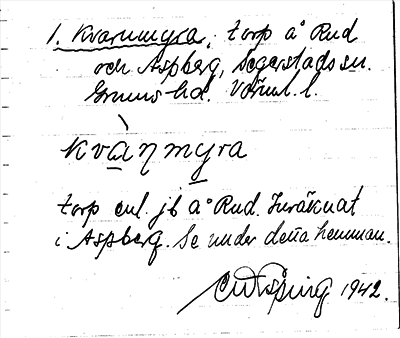 1. Kvarnmyra, torp å Rud
och Aspberg, Segerstads sn.
Grums hd. Värml. l.
kvàŋmyra
torp enl. jb å Rud. Inräknat
i Aspberg. Se under detta hemman.
1942.